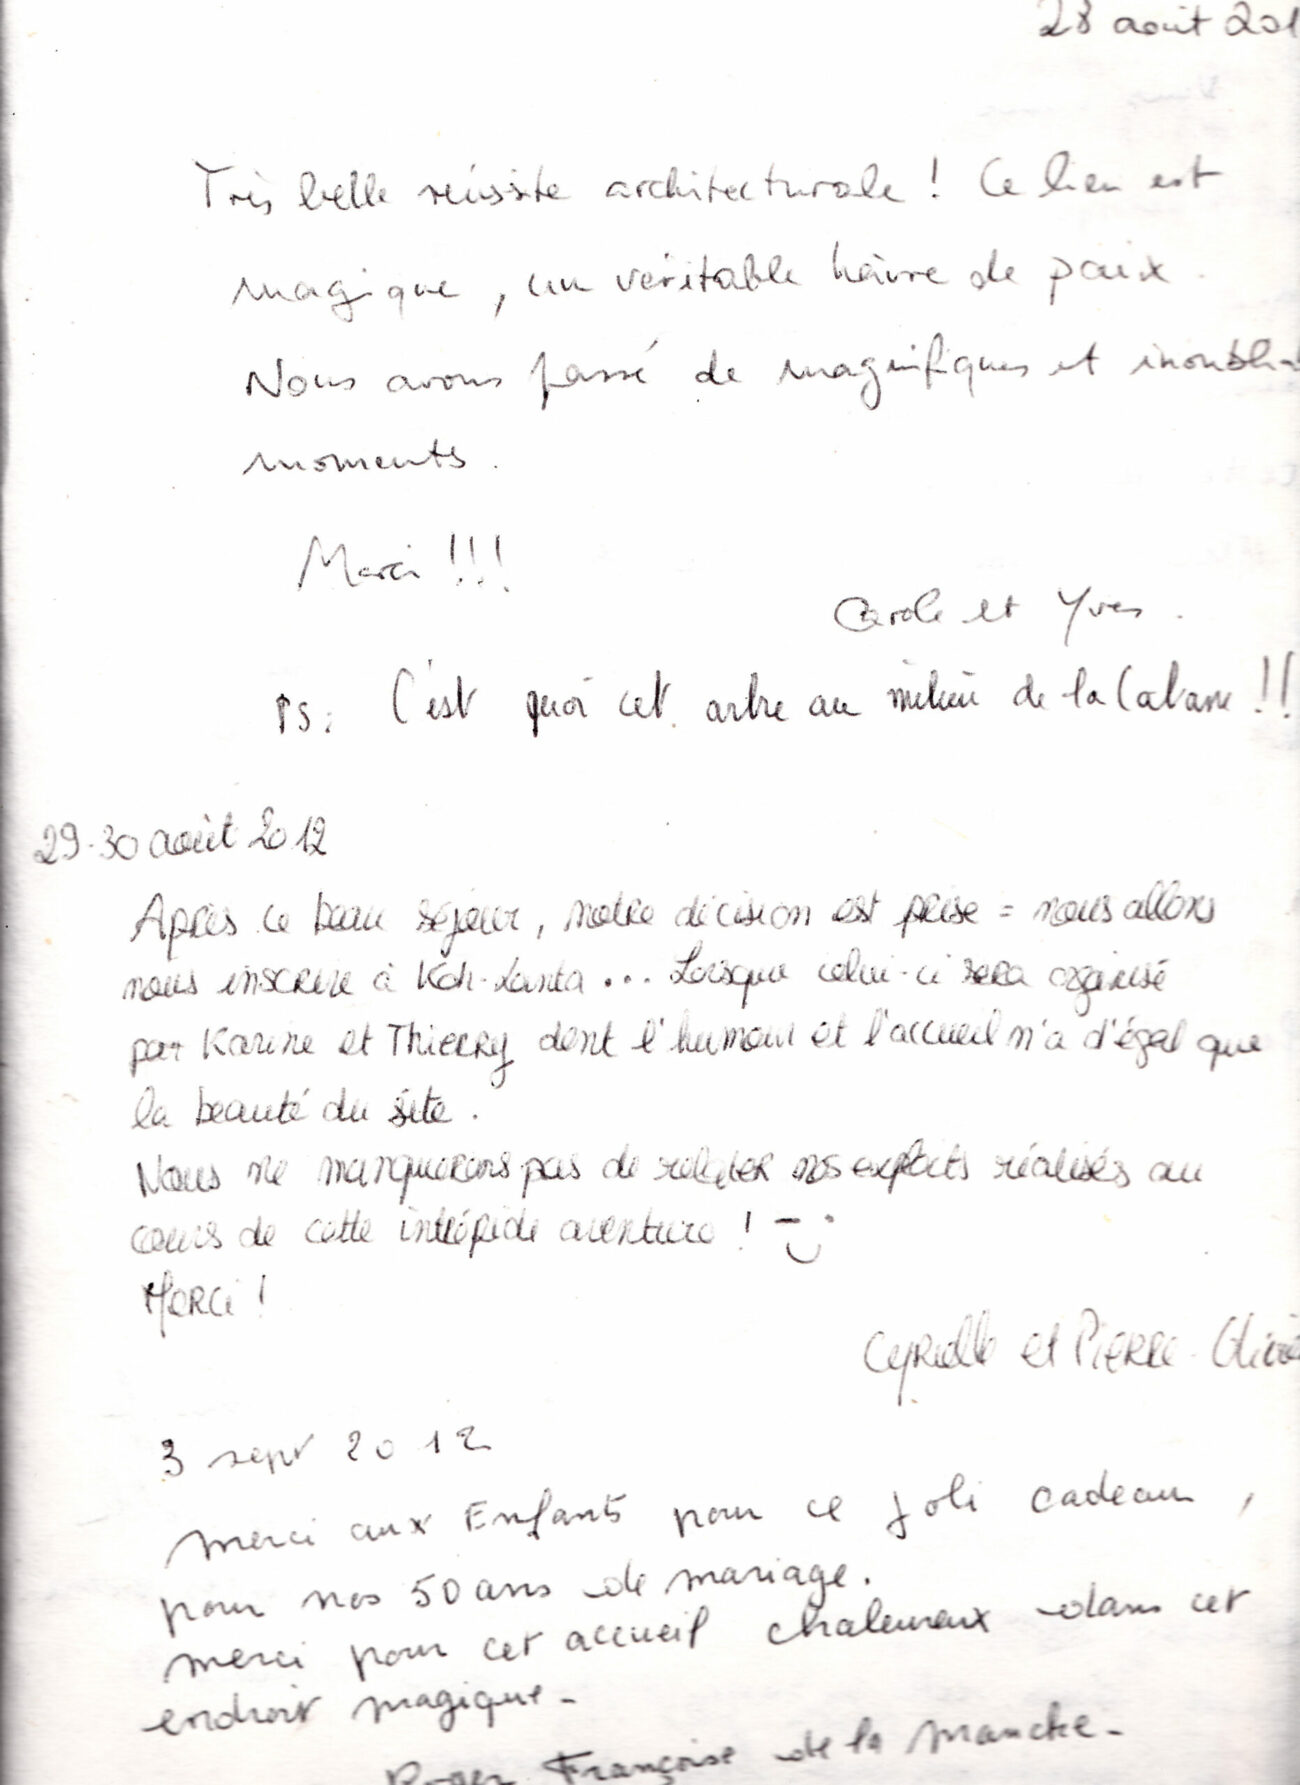 28 août 201
Très belle réussite architecturale ! Ce lieu est
magique, un véritable hâvre de paix.
Nous avons passé de magnifiques et inoubli
moments.
Merci !!!
Carole et Yves.
PS: C'est quoi cet arbre au milieu de la Cabane !!
29-30 août 2012
Après ce beau séjour, notre décision est prise = nous allons
nous inscrire à Koh-Lanta... Lorsque celui-ci sera organisé
par Karine et Thierry dont l'humour et l'accueil n'a d'égal que
la beauté du site.
Nous ne manquerons pas de relater nos exploits réalisés au
cours de cette intrépide aventure !
Merci !
Cyrielle et Pierre-Olivie
3 sept 2012
merci aux Enfants pour ce joli cadeau,
pour nos 50 ans de mariage.
merci pour cet accueil chaleureux dans cet
endroit magique -
Roger Françoise de la manche -